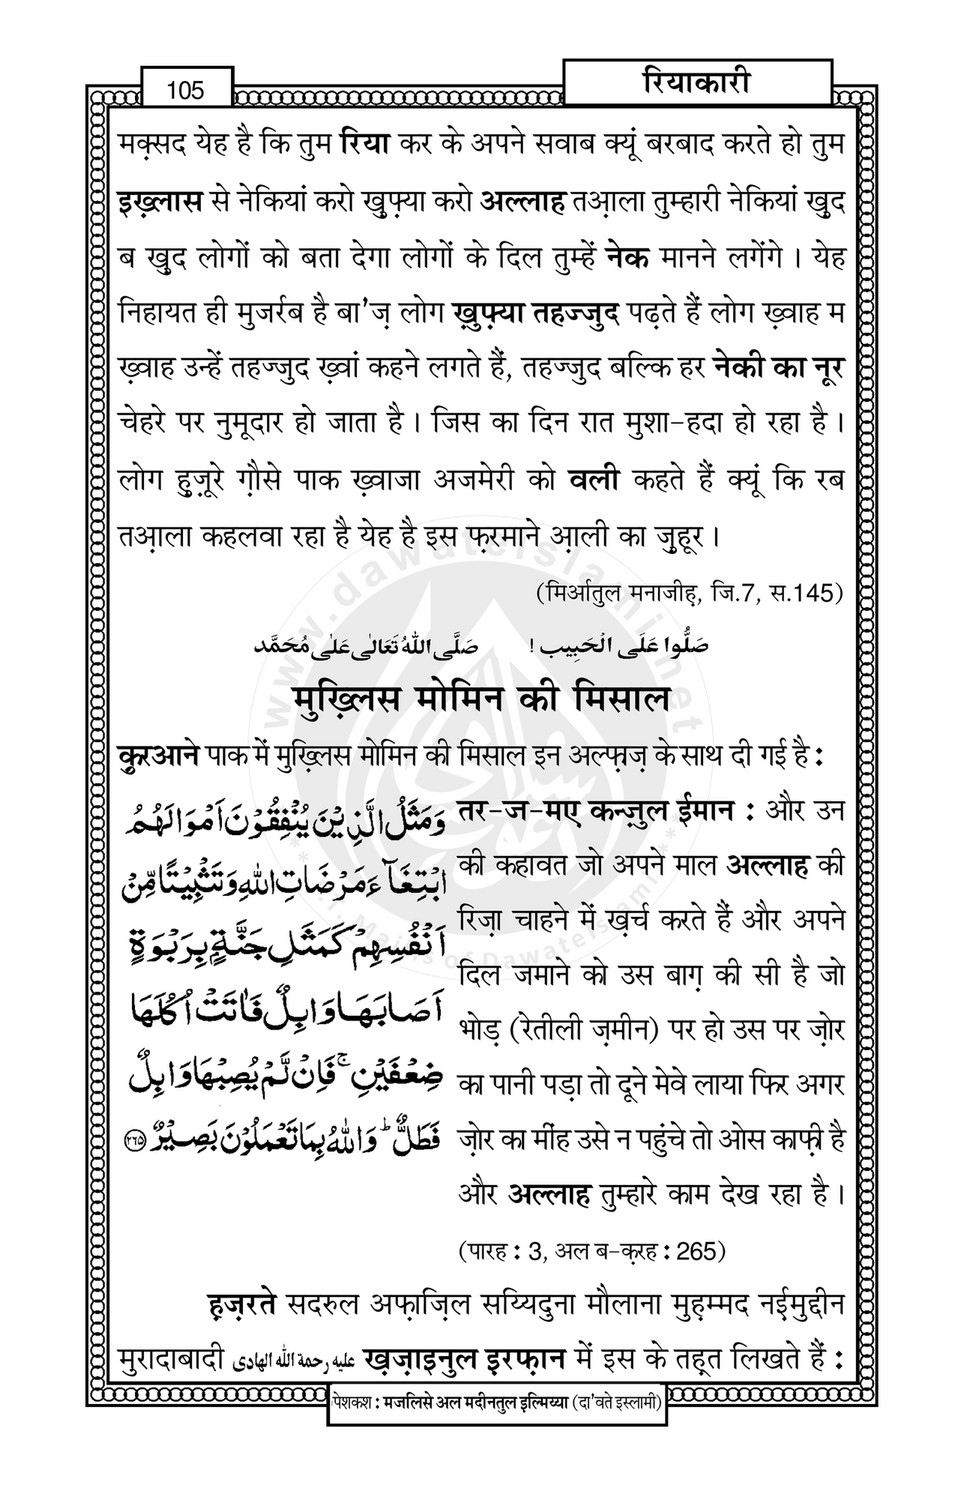 105
रियाकारी
मक़्सद येह है कि तुम रिया कर के अपने सवाब क्यूं बरबाद करते हो तुम
इख़्लास से नेकियां करो ख़ुफ़्या करो अल्लाह तआ़ला तुम्हारी नेकियां ख़ुद
ब ख़ुद लोगों को बता देगा लोगों के दिल तुम्हें नेक मानने लगेंगे । येह
निहायत ही मुजर्रब है बा'ज़ लोग ख़ुफ़्या तहज्जुद पढ़ते हैं लोग ख़्वाह म
ख़्वाह उन्हें तहज्जुद ख़्वां कहने लगते हैं, तहज्जुद बल्कि हर नेकी का नूर
चेहरे पर नुमूदार हो जाता है । जिस का दिन रात मुशा-हदा हो रहा है ।
लोग हुज़ूरे ग़ौसे पाक ख़्वाजा अजमेरी को वली कहते हैं क्यूं कि रब
तआ़ला कहलवा रहा है येह है इस फ़रमाने आ़ली का ज़ुहूर ।
(मिर्आतुल मनाजीह़, जि.7, स.145)
صَلُّوا عَلَى الْحَبِيب ! صَلَّى اللّٰهُ تَعَالٰى عَلٰى مُحَمَّد
मुख़्लिस मोमिन की मिसाल
क़ुरआने पाक में मुख़्लिस मोमिन की मिसाल इन अल्फ़ाज़ के साथ दी गई है :
وَمَثَلُ الَّذِيْنَ يُنْفِقُوْنَ اَمْوَالَهُمُ
ابْتِغَآءَ مَرْضَاتِ اللّٰهِ وَتَثْبِيْتًا مِّنْ
اَنْفُسِهِمْ كَمَثَلِ جَنَّةٍۭ بِرَبْوَةٍ
اَصَابَهَا وَابِلٌ فَاٰتَتْ اُكُلَهَا
ضِعْفَيْنِ ۚ فَاِنْ لَّمْ يُصِبْهَا وَابِلٌ
فَطَلٌّ ؕ وَاللّٰهُ بِمَا تَعْمَلُوْنَ بَصِيْرٌ ﴿۲۶۵﴾
तर-ज-मए कन्ज़ुल ईमान : और उन
की कहावत जो अपने माल अल्लाह की
रिज़ा चाहने में ख़र्च करते हैं और अपने
दिल जमाने को उस बाग़ की सी है जो
भोड़ (रेतीली ज़मीन) पर हो उस पर ज़ोर
का पानी पड़ा तो दूने मेवे लाया फिर अगर
ज़ोर का मींह उसे न पहुंचे तो ओस काफ़ी है
और अल्लाह तुम्हारे काम देख रहा है ।
(पारह : 3, अल ब-क़रह : 265)
ह़ज़रते सदरुल अफ़ाज़िल सय्यिदुना मौलाना मुह़म्मद नईमुद्दीन
मुरादाबादी عليه رحمة الله الهادى ख़ज़ाइनुल इरफ़ान में इस के तह़्त लिखते हैं :
पेशकश : मजलिसे अल मदीनतुल इल्मिय्या (दा'वते इस्लामी)
www.dawateislami.net